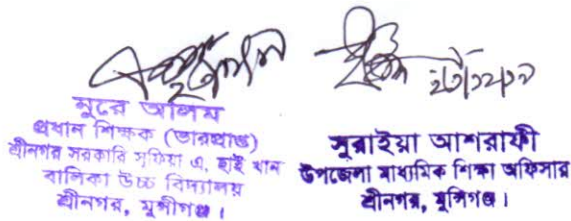 নুরে আলম
প্রধান শিক্ষক (ভারপ্রাপ্ত)
শ্রীনগর সরকারি সুফিয়া এ, হাই খান
বালিকা উচ্চ বিদ্যালয়
শ্রীনগর, মুন্সীগঞ্জ।
সুরাইয়া আশরাফী
উপজেলা মাধ্যমিক শিক্ষা অফিসার
শ্রীনগর, মুন্সিগঞ্জ।